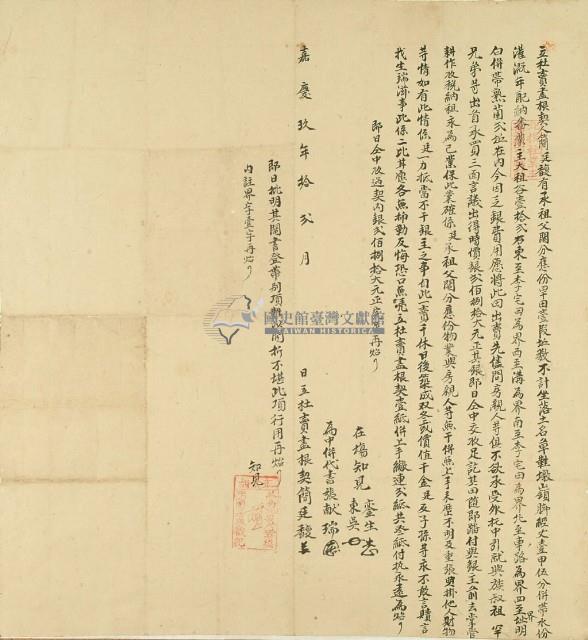 立杜賣盡根契人簡廷馥有承祖父鬮分應份旱田壹段坵數不計坐落土名草鞋墩山嶺腳經丈壹甲伍分併帶水份
灌溉年配納番業主大租谷壹拾弍石東至李宅田為界西至溝為界南至李宅田為界北至車路為界四至址明
白併帶熟菌弍坵在內今因乏銀費用應將此田出賣先儘問房親人等俱不欲承受外托中引就與族叔祖
兄弟等出首承買三面言議出得時價銀弍佰捌拾大元正其銀即日仝中交收足訖其田隨即踏付與銀主前去掌管
耕作收稅納租永為己業保此業確係廷承祖父鬮分應份物業與房親人等無干併無上手來歷不明及重張典掛他人財物
等情如有此情係廷一力抵當不干銀主之事自此一賣千休日後築成双冬或價值千金廷及子孫等永不敢言贖言
找生端滋事此係二比甘愿各無抑勒反悔恐口無憑立杜賣盡根契壹紙併上手繳連弍紙共叁紙付執永遠為炤
即日仝中收過契內銀弍佰捌拾大元正完足再炤
在場知見
為中併代書張献瑞
嘉慶玖年拾弍月 日立杜賣盡根契簡廷馥
知見
即日批明其鬮書登帶別項 開折不堪此項行用再炤
內註界字壹字再炤
國史館臺灣文獻館
TAIWAN HISTORICA